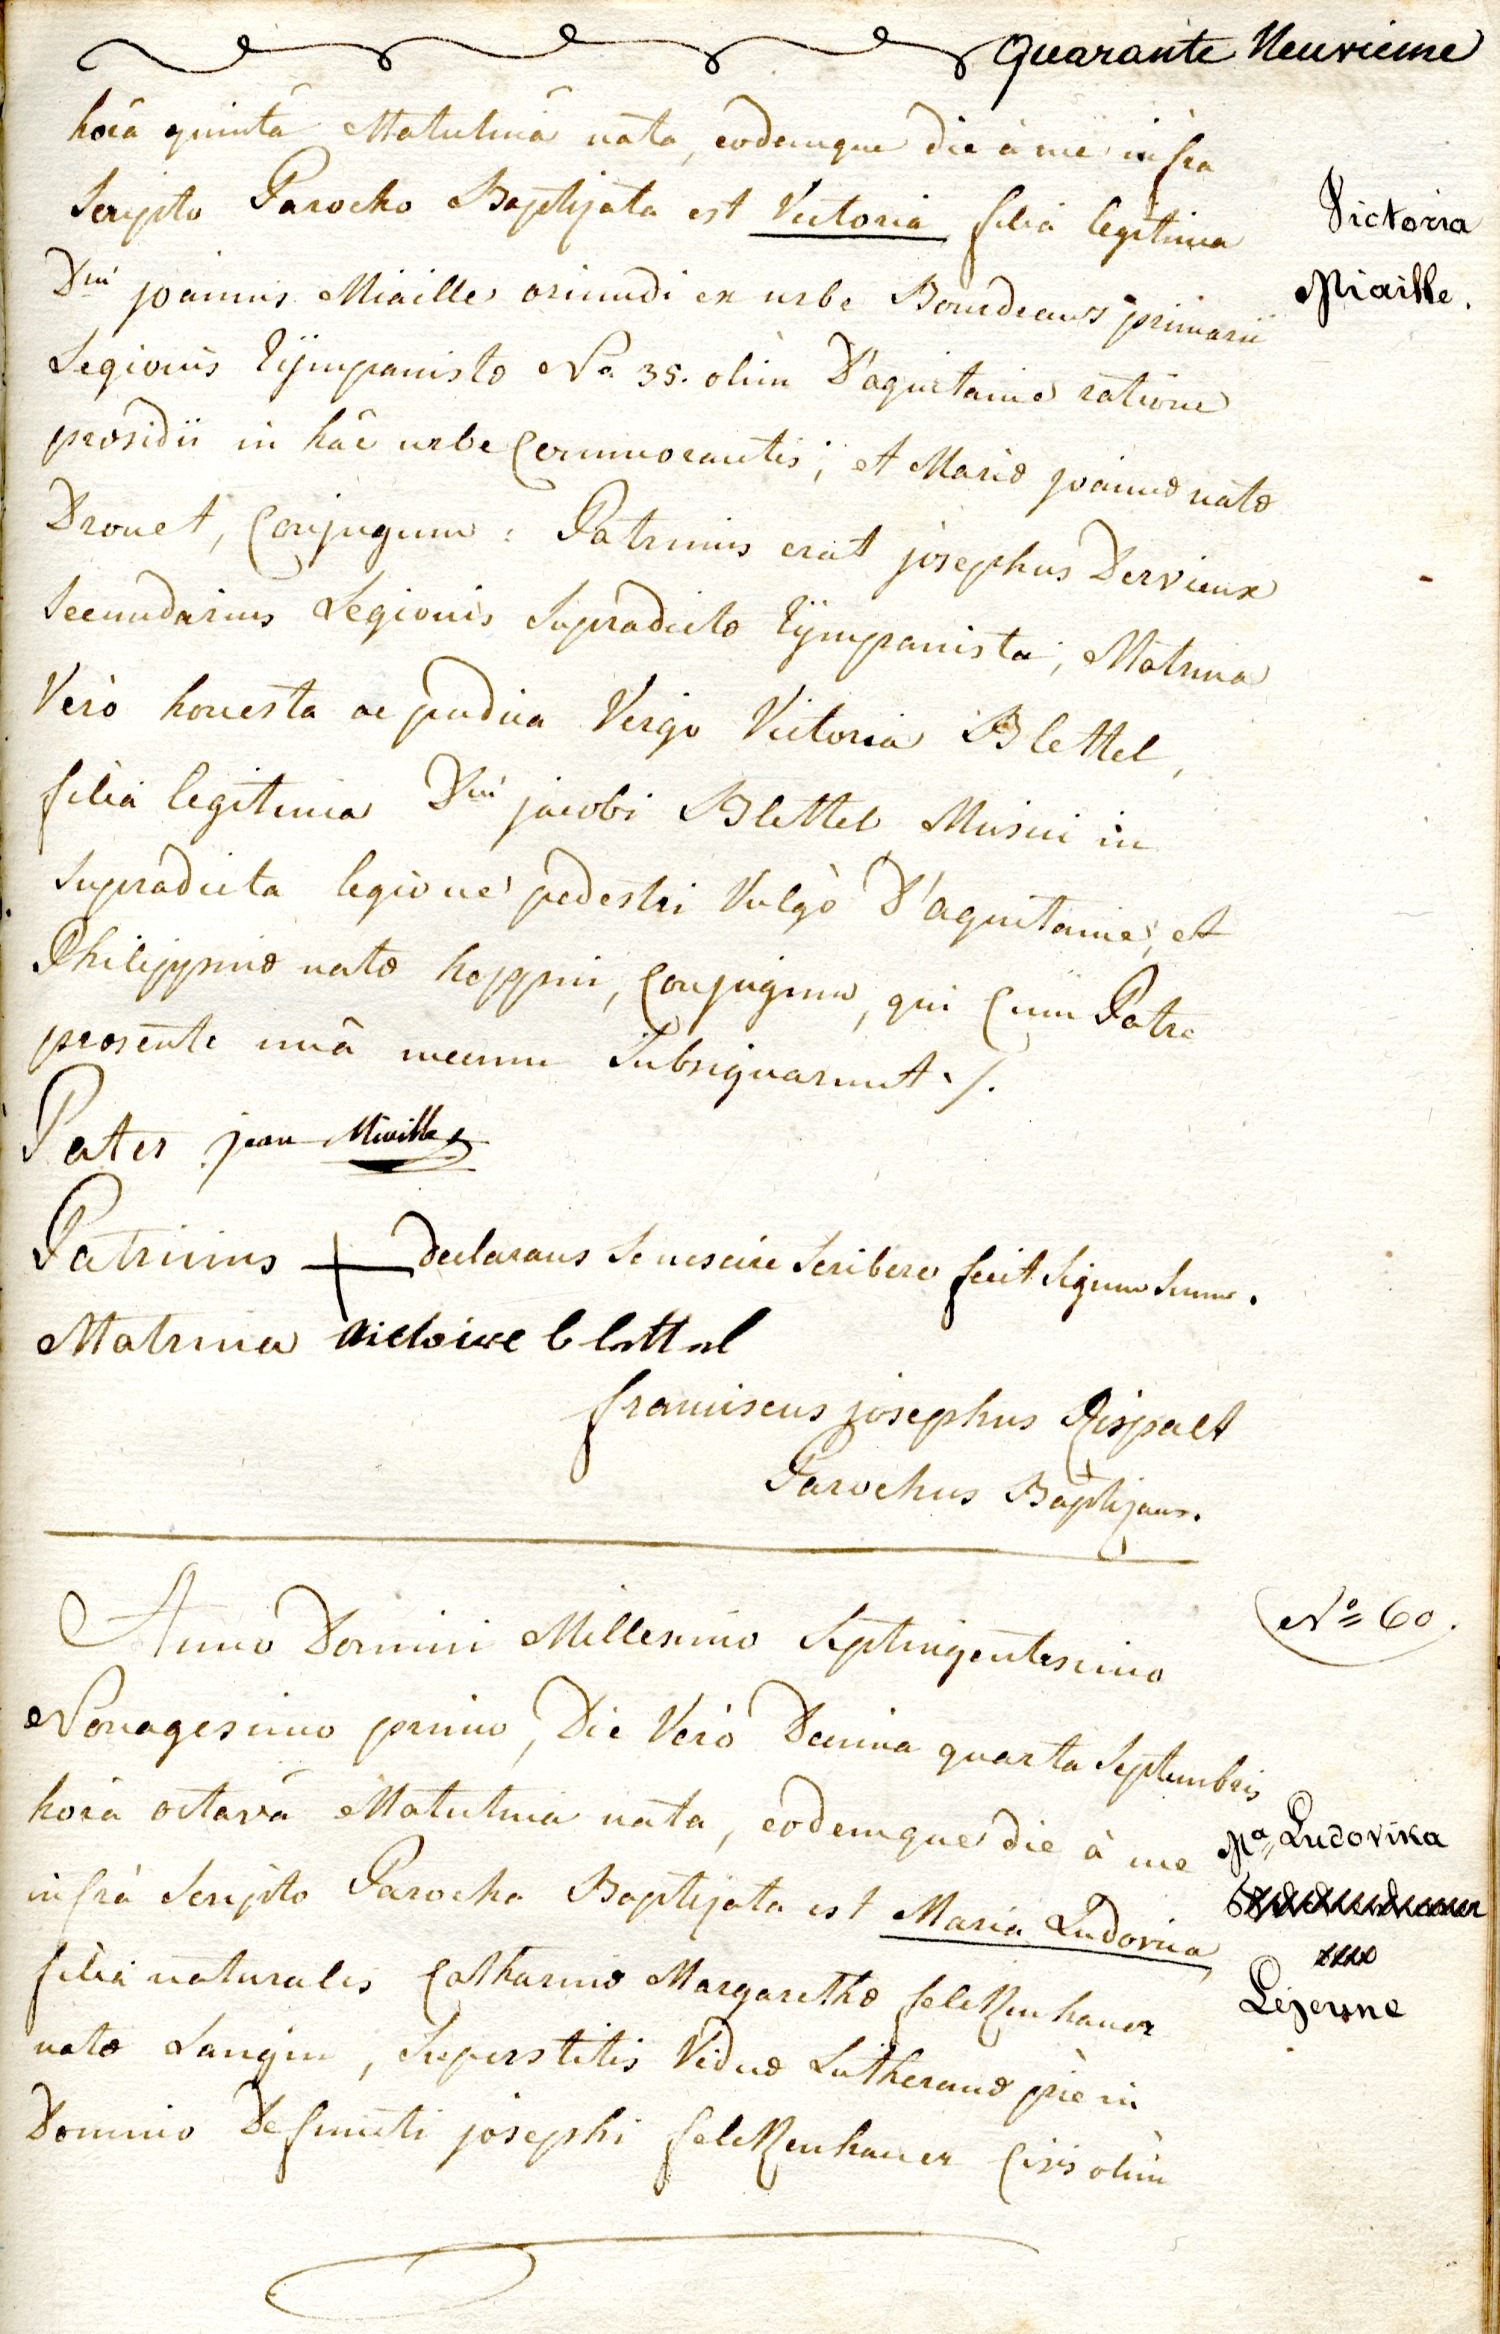 Quarante Neuvieme
horâ quintâ Matutinâ nata, eodemque die à me infra
Scripto Parocho Baptizata est Victoria filia legitima
Victoria
Miaille.
Dni joannis Miaille oriundi ex urbe Bourdeaux primarii
Legionis Tÿmpanistæ No 35. olim D'aquitaine ratione
præsidii in hâc urbe Commorantis, et Mariæ joannæ natæ
Drouet, Conjugum: Patrinus erat josephus Dervieux
Secundarius Legionis Supradictæ Tÿmpanista, Matrina
Verò honesta ac pudica Virgo Victoria Blettel,
filia legitima Dni jacobi Blettel Musici in
Supradicta legione pedestri Vulgò D'aquitaine, et
Philippinæ natæ heppin, Conjugum, qui Cum Patre
præsente unâ mecum Subsignarunt ./.
Pater jean Miaille
Patrinus + declarans Se nescire Scribere fecit Signum Suum.
Matrina victoire blettel
franciscus josephus Rispalt
Parochus Baptizans.
No 60.
Anno Domini Millesimo Septingentesimo
Nonagesimo primo, Die Verò Decima quarta Septembris
horâ octavâ Matutina nata, eodemque die à me
Ma Ludovika
infrà Scripto Parocho Baptizata est Maria Ludovica
Lejeune
filia naturalis Catharinæ Margarethæ felckenhauer
natæ Langin, Superstitis Viduæ Lutheranæ piè in
Domino Defuncti josephi felckenhauer Civis olim